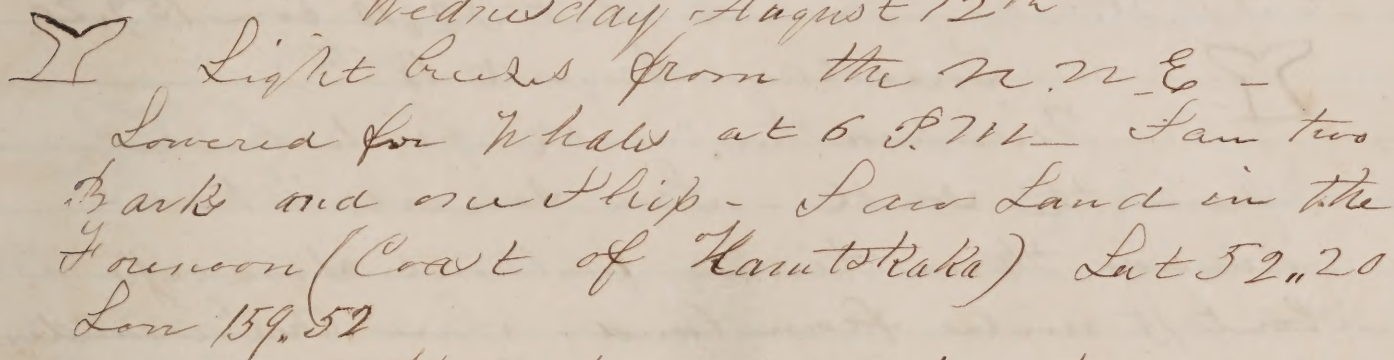 Wednesday August 12th
Light breezes from the N.N.E -
Lowered for Whales at 6 P.M - Saw two
Barks and one Ship - Saw Land in the
Forenoon (Coast of Kamtskaka) Lat 52,,20
Lon 159,,52